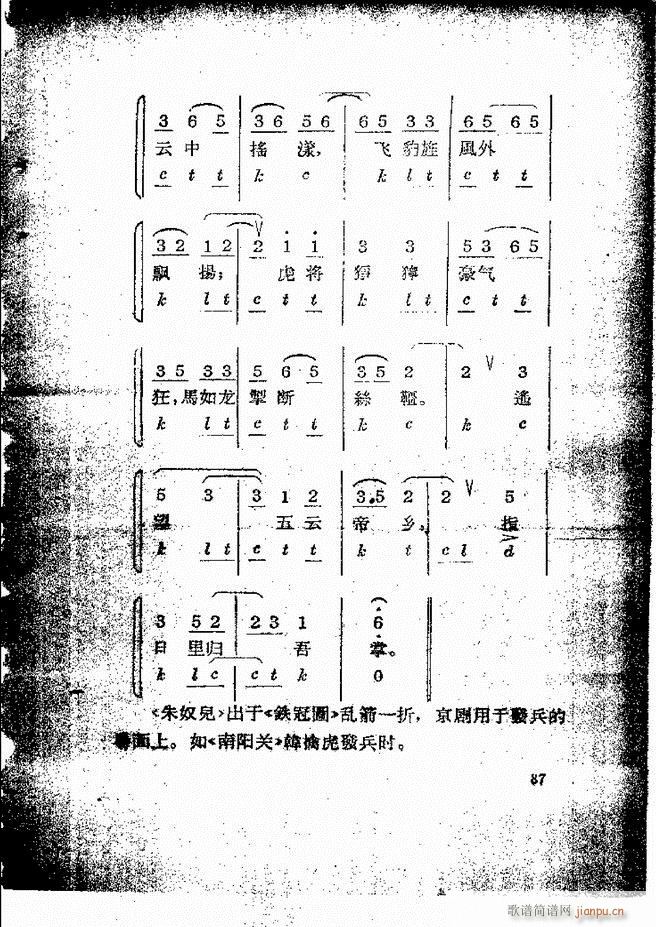 3 6 5 3 6 5 6 6 5 3 3 6 5 6 5
云中 搖漾, 飞豹旌風外
c t t k c k l t c t t
3 2 1 2 2 1 1 3 3 5 3 6 5
飄揚; 虎将 豪气
k l t c t t k l t c t t
3 5 3 3 5 6 5 3 5 2 2 3
狂,馬如龙掣断 絲韁。 遙
k l t c t t k c k c
5 3 3 1 2 3.5 2 2 5
五云 帝乡, 指
k l t c t t k t c l d
3 5 2 2 3 1 6
日里归 吾 掌。
k l c c t k 0
《朱奴兒》出于《鉄冠圖》乱箭一折, 京剧用于發兵的
面上。如《南阳关》韓擒虎發兵时。
87
歌谱简谱网 jianpu.cn